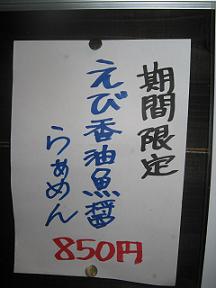 期間限定
えび香油魚醤
らぁめん
850円